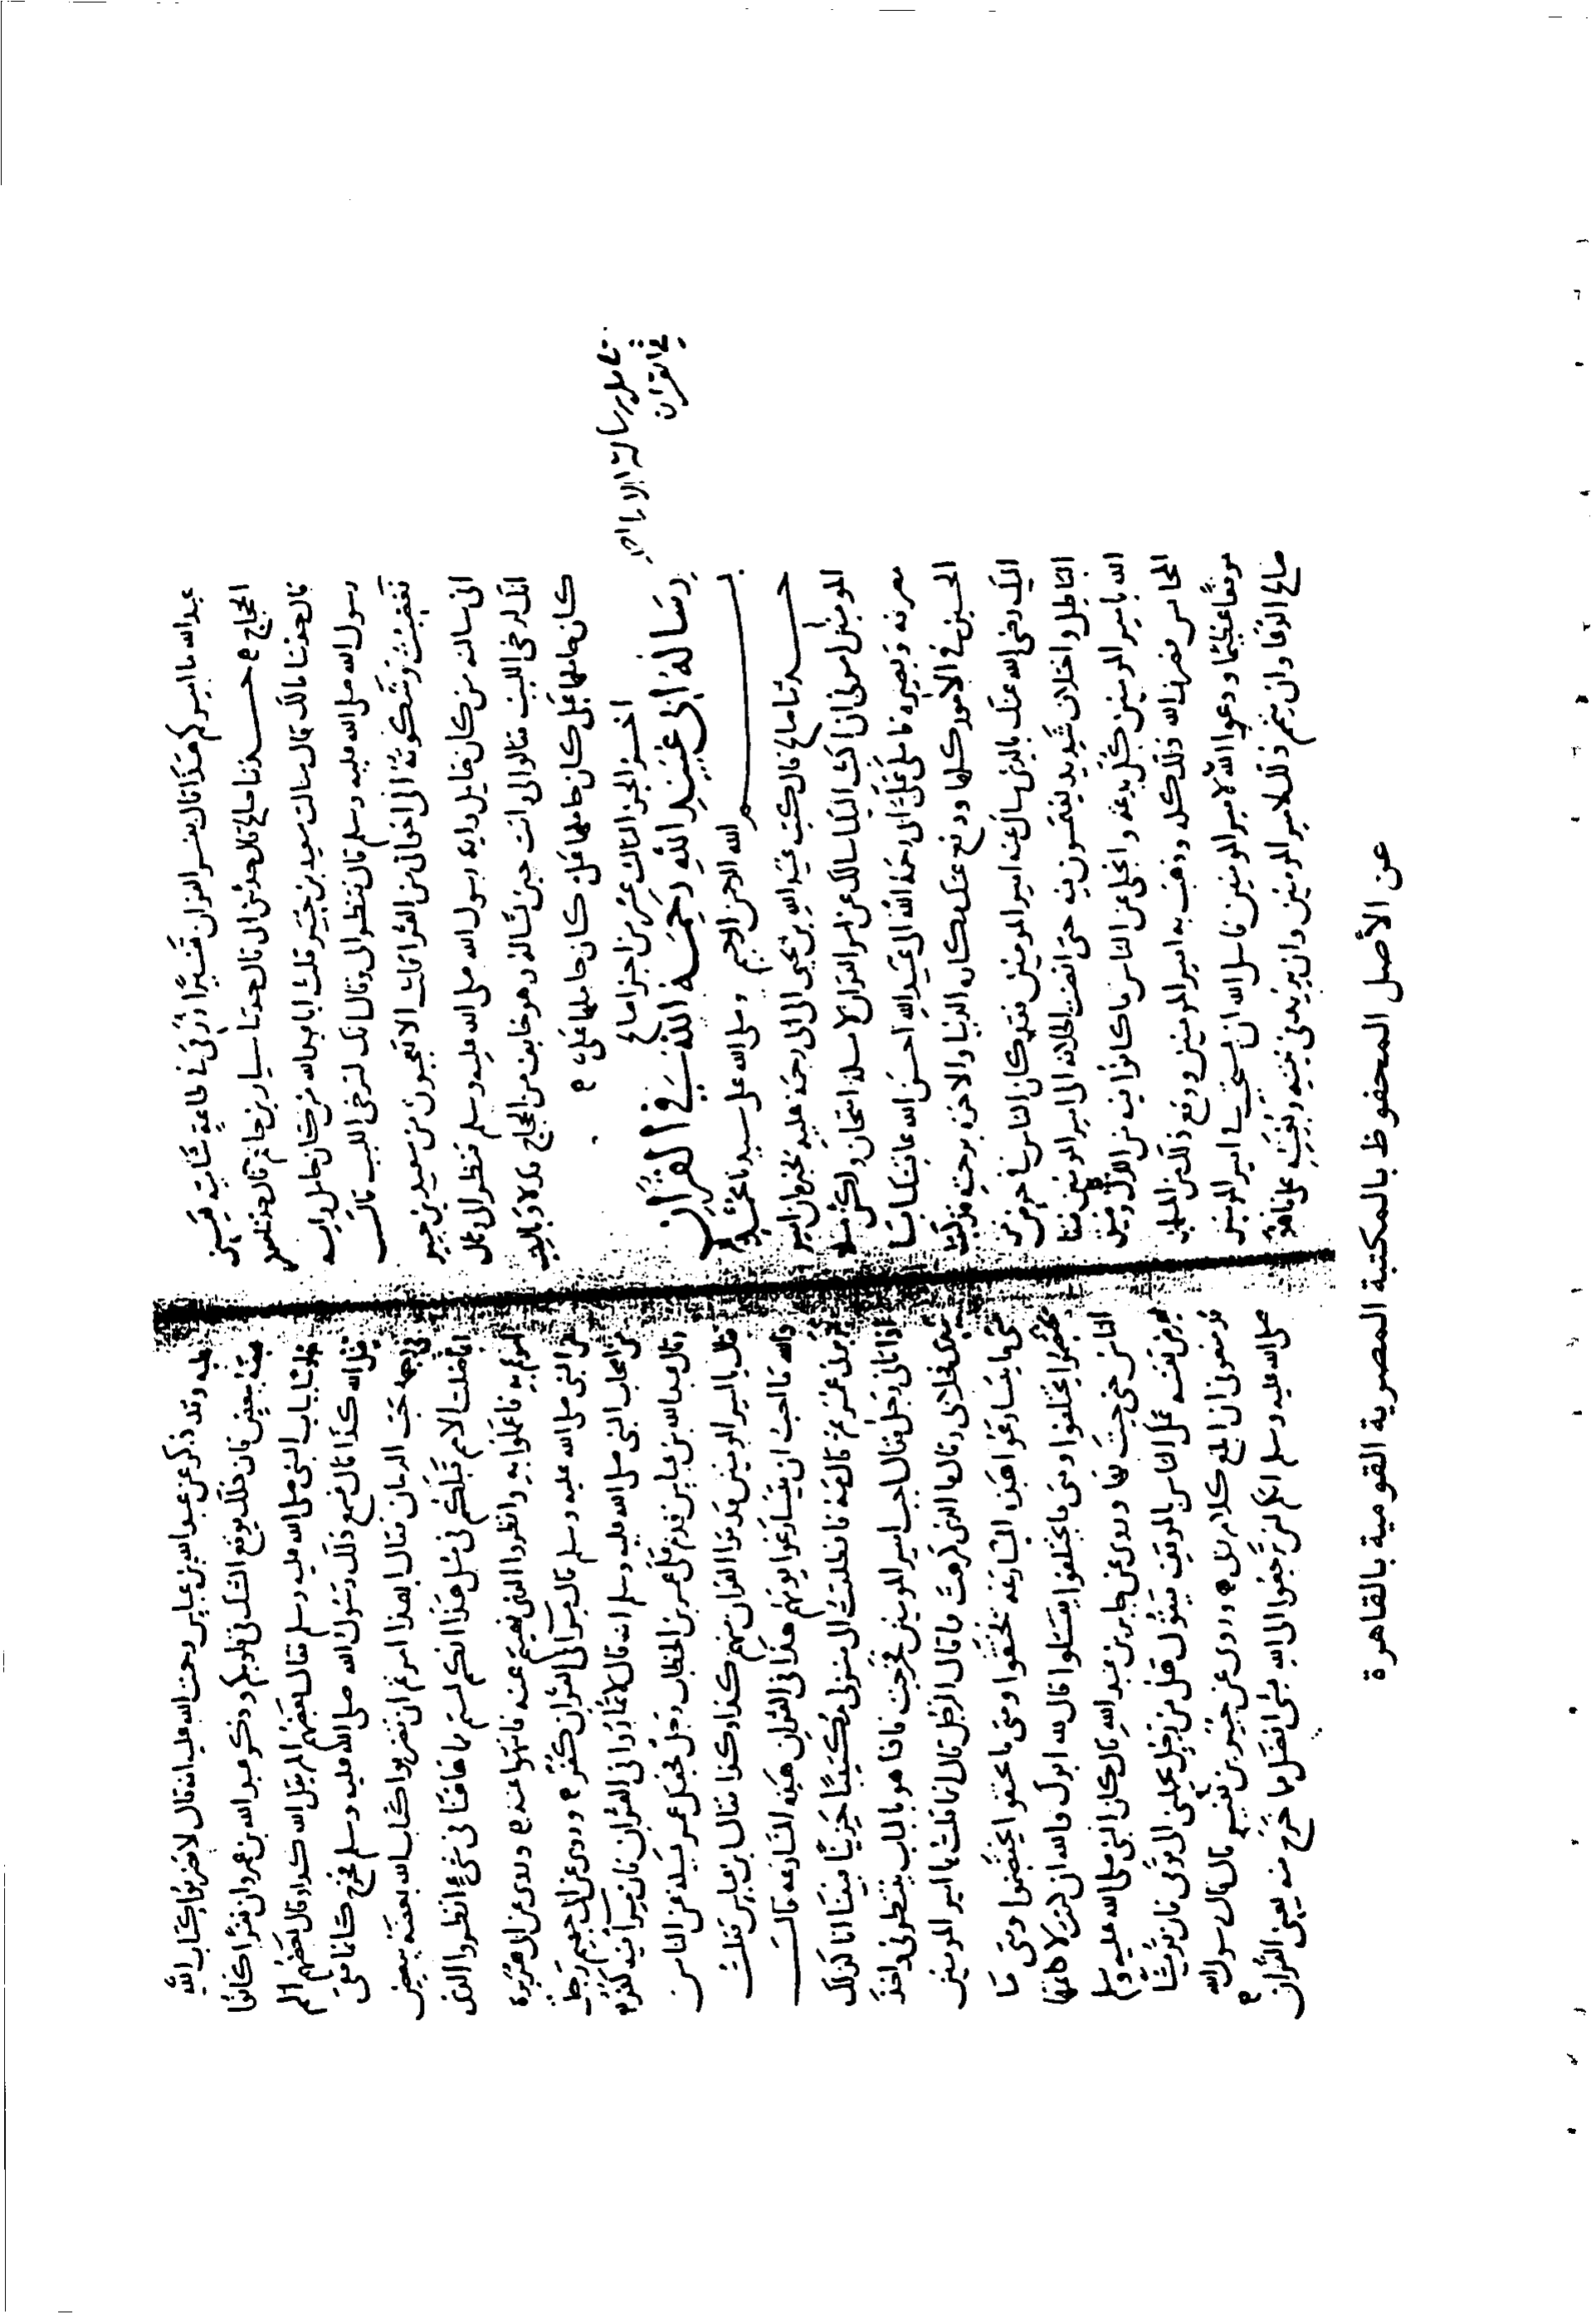 عبد الله ما اميركم هذا قال يفسر القران تفسيرا اذى في طاعة شاب قيسى
الحجاج ه حدثنا صالح قال حدثني ابي قال حدثنا سيار بن حاتم قال حدثنا جعفر
قال حدثنا مالك قال سالت سعيد بن جبير قلت ابا عبد الله من كان حامل راية
رسول الله صلى الله عليه وسلم قال فنظر الي وقال انك لرخي اللبب قال
فغضبت وشكوته الى اخواني من القرا قلت الا تعجبون من سعيد بن جبير
اني سالته من كان حامل راية رسول الله صلى الله عليه وسلم فنظر الي وقال
انك لرخي اللبب فقالوا لي وانت حين تساله وهو خايف من الحجاج قد لاذ بالبيت
كان حاملها علي كان حاملها علي كان حاملها علي ه
اخر الجز الثالث عشر من اجزا صالح
رسالة ابي عبد الله رحمه الله في القران
تامل رسالة الامام احمد
في القران
بسم الله الرحمن الرحيم وصلى الله على سيدنا محمد
حدثنا صالح قال كتب عبيد الله بن يحيى الى ابي رحمة الله عليه يخبره ان امير
المومنين امرني ان اكتب اليك اسالك عن امر القران لا مسلة امتحان ولكن مسلة
معرفة وبصيرة فاملى علي ابي رحمه الله الى عبيد الله احسن الله عاقبتك ابا
الحسن في الامور كلها ودفع عنك مكاره الدنيا والاخرة برحمته قد كتبت
اليك رضي الله عنك بالذي سال عنه امير المومنين فقد كان الناس في خوض من
الباطل واختلاف شديد يغتمسون فيه حتى افضت الخلافة الى امير المومنين فنفا
الله بامير المومنين كل بدعة وانجلى عن الناس ما كانوا فيه من الذل وضيق
المحابس فصرف الله ذلك كله وذهب به امير المومنين ووقع ذلك من المسلمين
موقعا عظيما ودعوا الله لامير المومنين فاسل الله ان يستجيب في امير المومنين
صالح الدعا وان يتم ذلك لامير المومنين وان يزيد في نيته ويعينه على ما هو
عليه وقد ذكر عن عبد الله بن عباس رحمت الله عليه انه قال لا تضربوا كتاب الله
بعضه ببعض فان ذلك يوقع الشك في قلوبكم وذكر عبد الله بن عمرو ان نفرا كانوا
جلوسا بباب النبي صلى الله عليه وسلم فقال بعضهم الم يقل الله كذا وقال بعضهم الم
يقل الله كذا قال فسمع ذلك رسول الله صلى الله عليه وسلم فخرج كانما فقي
في وجهه حب الرمان فقال ابهذا امرتم ان تضربوا كتاب الله بعضه ببعض
انما ضلت الامم قبلكم في مثل هذا انكم لستم مما هاهنا في شي انظروا الذي
امرتم به فاعملوا به وانظروا الذي نهيتم عنه فانتهوا عنه ه وروى عن ابي هريرة
عن النبي صلى الله عليه وسلم قال مرا في القران كفر ه وروى عن ابي جهيم رجل
من اصحاب النبي صلى الله عليه وسلم انه قال لا تماروا في القران فان مرا فيه كفر ه
وقال عبد الله بن عباس قدم على عمر بن الخطاب رجل فجعل عمر يسله عن الناس
فقال يا امير المومنين قد قرا القران منهم كذا وكذا فقال ابن عباس فقلت
والله ما احب ان يتسارعوا يومهم هذا في القران هذه المسارعة قال
فزبرني عمر ثم قال مه فانطلقت الى منزلي مكتيبا حزينا فبينا انا كذلك
اذ اتاني رجل فقال اجب امير المومنين فخرجت فاذا هو بالباب ينتظرني فاخذ
بيدي فخلا بي وقال ما الذي كرهت مما قال الرجل قال انفا قلت يا امير المومنين
متى ما يتسارعوا هذه المسارعة يحتقوا ومتى ما يحتقوا يختصموا ومتى ما
يختصموا يختلفوا ومتى ما يختلفوا يقتتلوا قال لله ابوك والله ان كنت لاكاتمها
الناس حتى جيت بها وروى عن جابر بن عبد الله قال كان النبي صلى الله عليه وسلم
يعرض نفسه على الناس بالموقف فيقول هل من رجل يحملني الى قومه فان قريشا
قد منعوني ان ابلغ كلام ربي ه وروى عن جبير بن نفير قال قال رسول الله
صلى الله عليه وسلم انكم لن ترجعوا الى الله بشي افضل مما خرج منه يعني القران
عن الأصل المحفوظ بالمكتبة المصرية القومية بالقاهرة